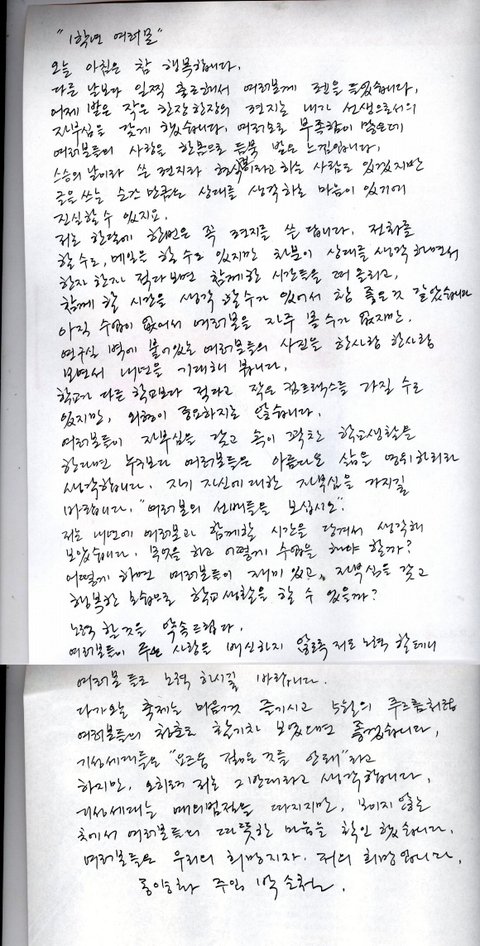 "1학년 여러분"
오늘 아침은 참 행복합니다.
다른 날보다 일찍 출근해서 여러분께 펜을 들었습니다.
어제 받은 작은 한장한장의 편지는 내가 선생으로서의
자부심을 갖게 했습니다. 여러모로 부족함이 많은데
여러분들의 사랑을 한몸으로 듬뿍 받은 느낌입니다.
스승의 날이라 쓴 편지라 형식이라고 하는 사람도 있겠지만
글을 쓰는 순간 만큼은 상대를 생각하는 마음이 있기에
진실할 수 있지요.
저는 한달에 한번은 꼭 편지를 쓴답니다. 전화를
할 수도, 메일을 할 수도 있지만 차분히 상대를 생각하면서
한자 한자 적다보면 함께한 시간들을 떠올리고,
함께 할 시간을 생각할 수가 있어서 참 좋은것 같았습니다
아직 수업이 없어서 여러분을 자주 볼 수가 없지만,
연구실 벽에 붙어있는 여러분들의 사진을 한사람 한사람
보면서 내년을 기대해 봅니다.
학교가 다른 학교보다 작다고 작은 컴프렉스를 가질 수도
있지만, 외형이 중요하지는 않습니다.
여러분들이 자부심을 갖고 속이 꽉찬 학교생활을
한다면 누구보다 여러분들은 아름다운 삶을 영위하리라
생각합니다. 자기 자신에 대한 자부심을 가지길
바랍니다. "여러분의 선배들을 보십시오".
저는 내년에 여러분과 함께할 시간을 당겨서 생각해
보았습니다. 무엇을 하고 어떻게 수업을 해야 할까?
어떻게 하면 여러분들이 재미있고, 자부심을 갖고
행복한 모습으로 학교생활을 할 수 있을까?
노력 할 것을 약속드립니다.
여러분들이 주신 사랑을 배신하지 않도록 저도 노력 할테니
여러분들도 노력 하시길 바랍니다.
다가오는 축제는 마음껏 즐기시고 5월의 푸르름처럼
여러분들의 하루도 활기차 보였으면 좋겠습니다.
기성세대들은 "요즈음 젊은것들 안돼"라고
하지만, 오히려 저는 기안대라고 생각합니다.
기성세대는 예의범절을 따지지만, 보이지 않는
곳에서 여러분들의 따뜻한 마음을 확인 했습니다.
여러분들은 우리의 희망이자. 저의 희망입니다.
주임